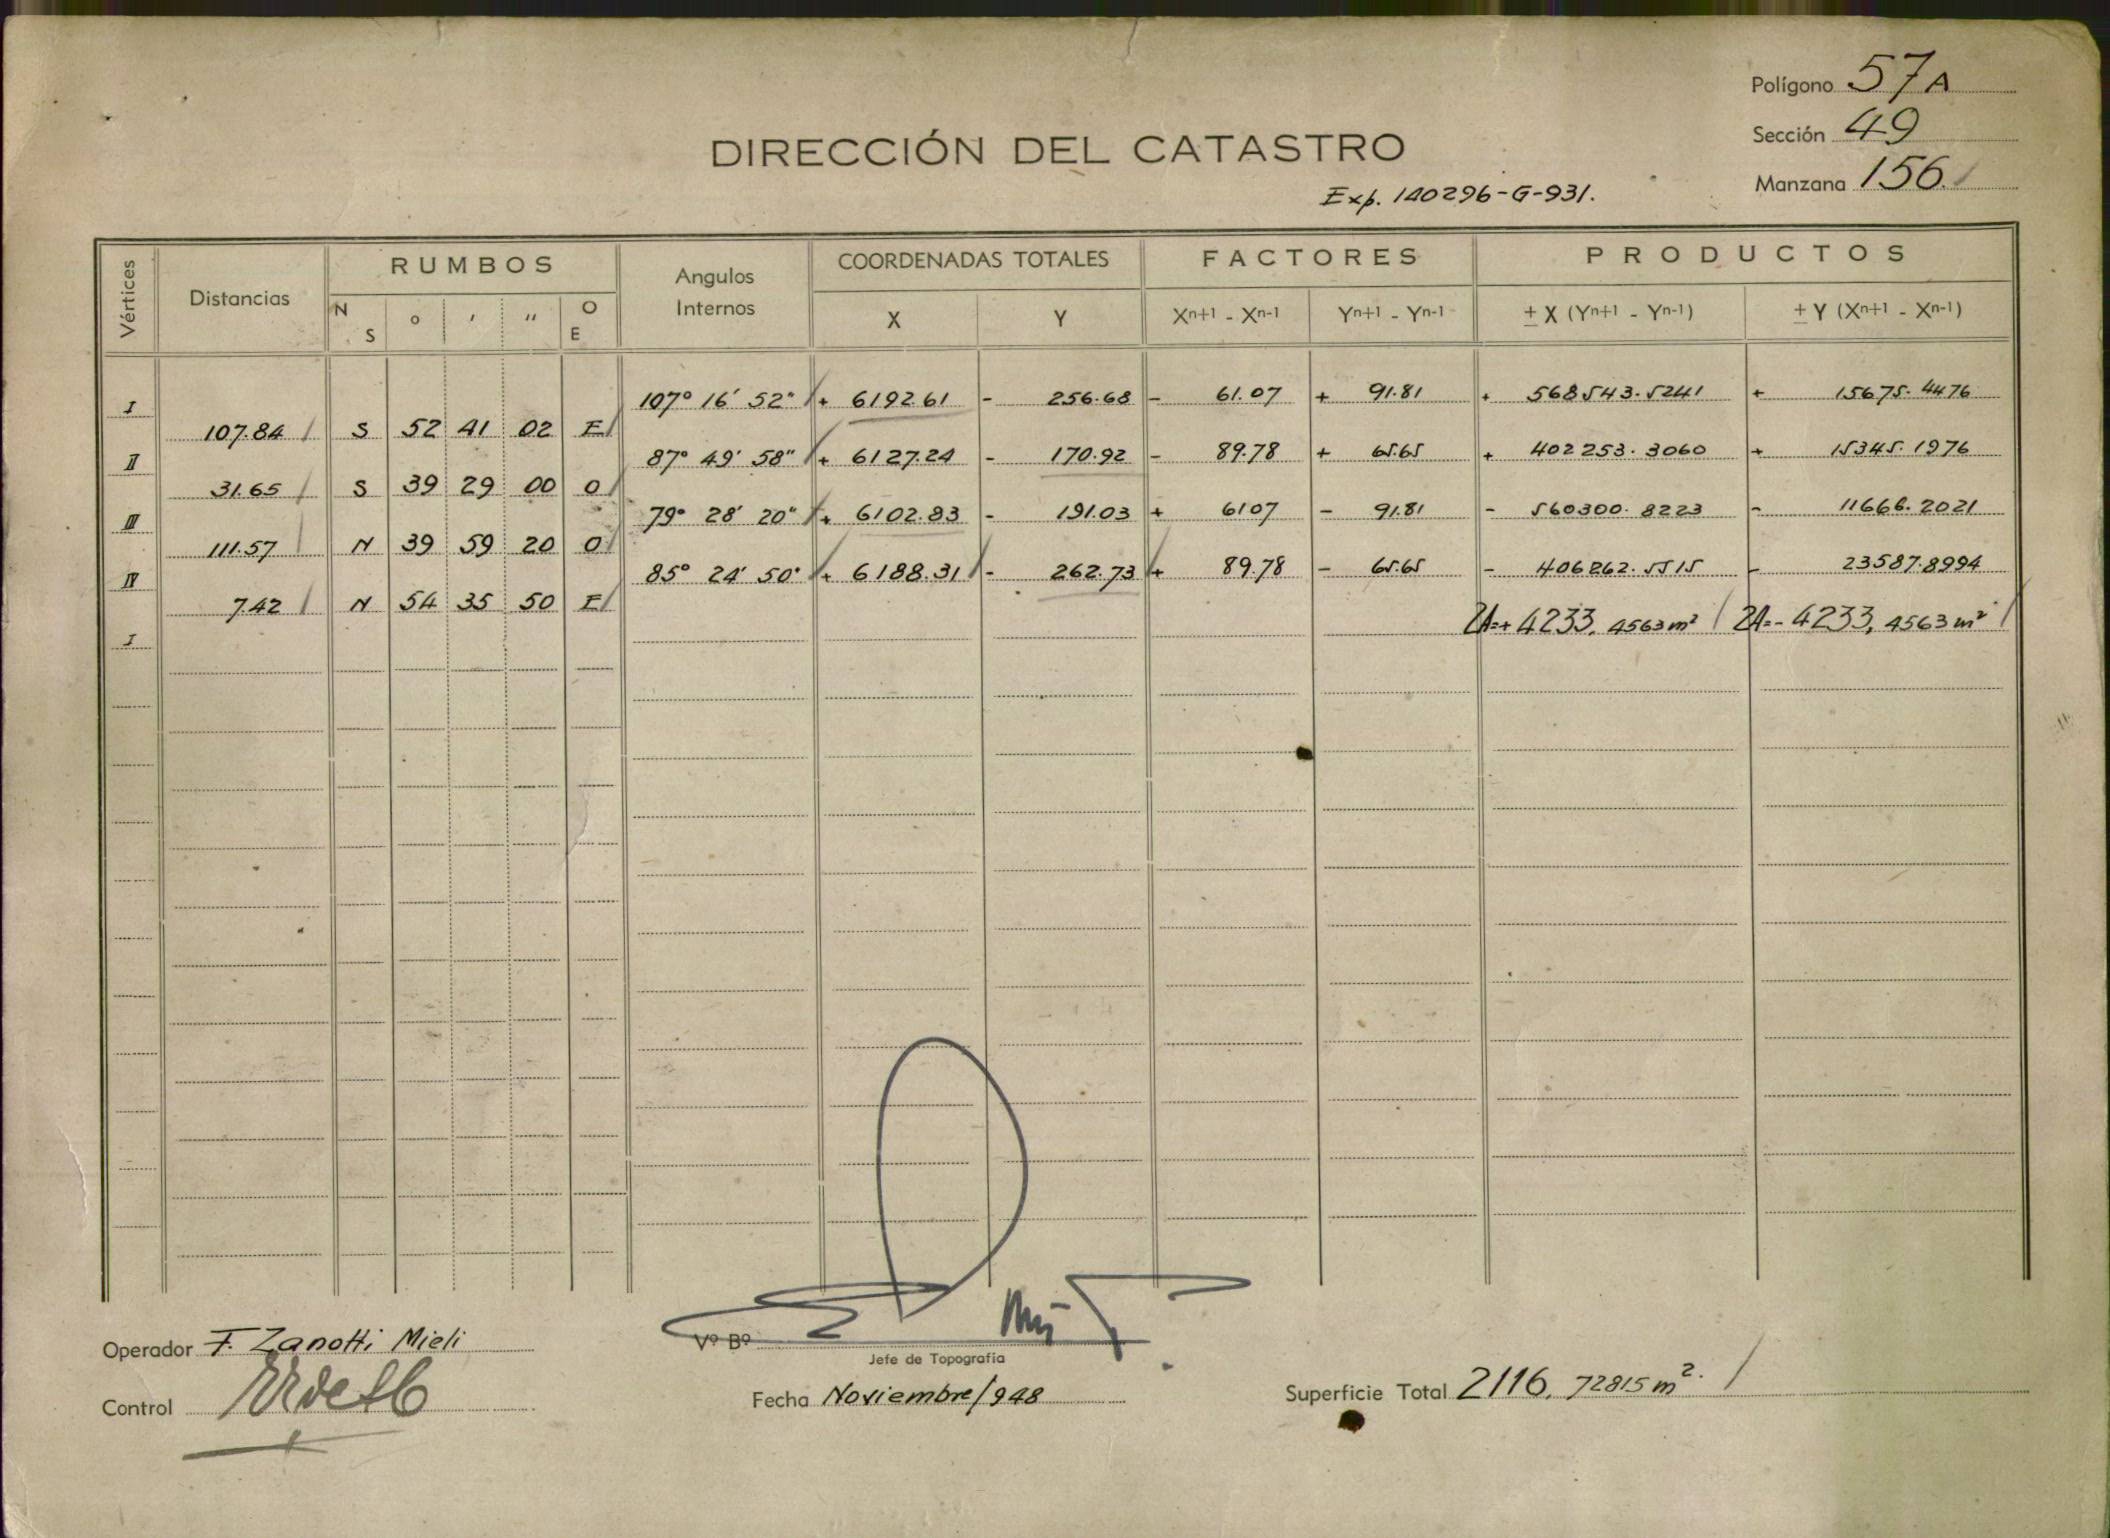 Polígono 57A
Sección 49
DIRECCIÓN DEL CATASTRO
Manzana 156.
Exp. 140296-G-931.
Vértices Distancias RUMBOS Angulos Internos COORDENADAS TOTALES FACTORES PRODUCTOS
N S ° ' " O E X Y Xn+1 - Xn-1 Yn+1 - Yn-1 ± X (Yn+1 - Yn-1) ± Y (Xn+1 - Xn-1)
I 107° 16' 52" + 6192.61 - 256.68 - 61.07 + 91.81 + 568543.5241 + 15675.4476
107.84 S 52 41 02 E
II 87° 49' 58" + 6127.24 - 170.92 - 89.78 + 65.65 + 402253.3060 + 15345.1976
31.65 S 39 29 00 O
III 79° 28' 20" + 6102.83 - 191.03 + 6107 - 91.81 - 560300.8223 - 11666.2021
111.57 N 39 59 20 O
IV 85° 24' 50" + 6188.31 - 262.73 + 89.78 - 65.65 - 406262.5515 - 23587.8994
7.42 N 54 35 50 E
I 2A=+ 4233, 4563 m² 2A=- 4233, 4563 m²
Operador F. Zanotti Mieli
Vº Bº
Jefe de Topografía
Control
Fecha Noviembre/948
Superficie Total 2116, 72815 m².